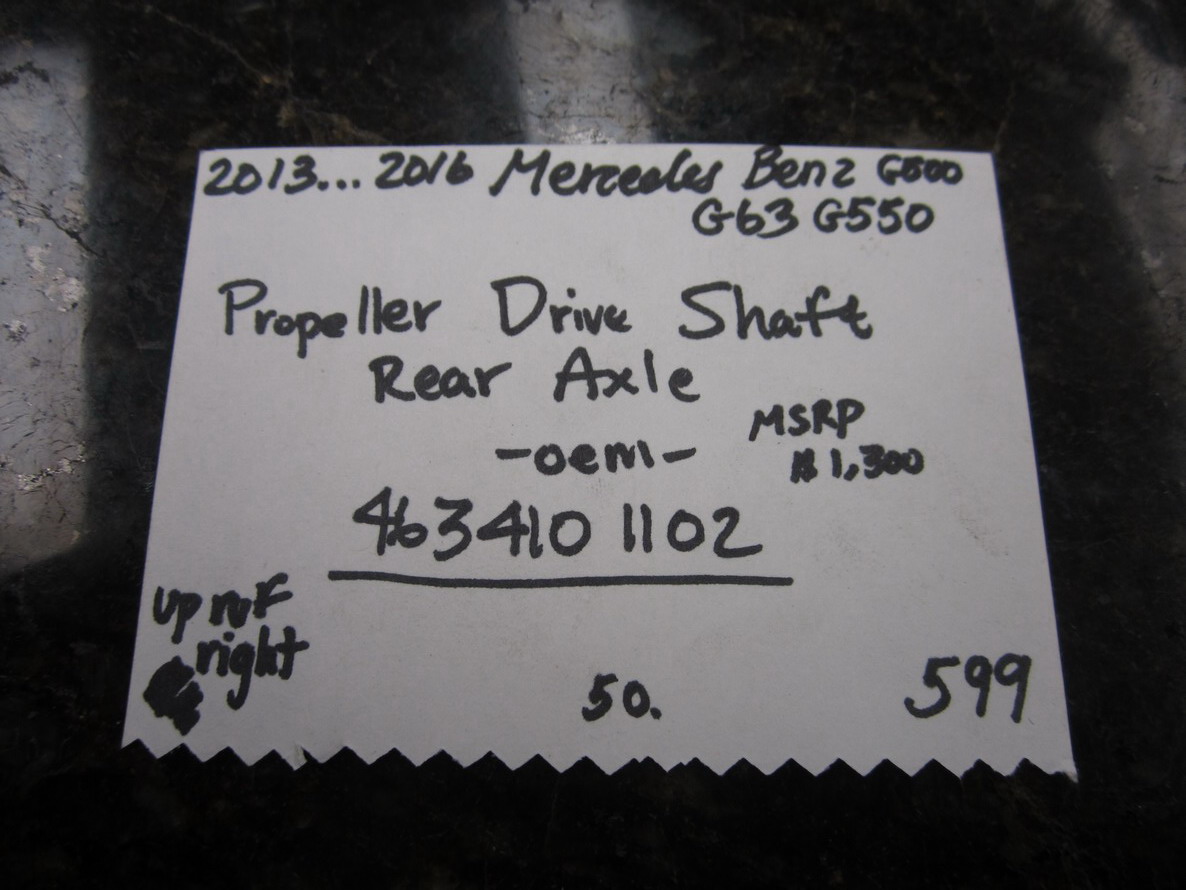 2013... 2016 Mercedes Benz G500
G63 G550
Propeller Drive Shaft
Rear Axle
-oem-
MSRP
$1,300
463410 1102
up
right
50.
599